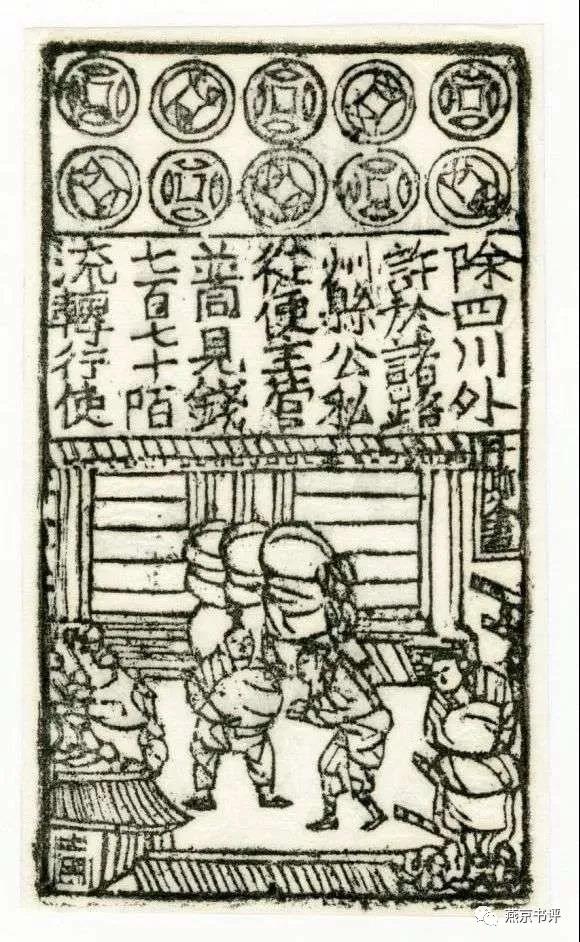 除四川外
許於諸路
州縣公私
從便主管
並同見錢
七百七十陌
流轉行使
燕京书评